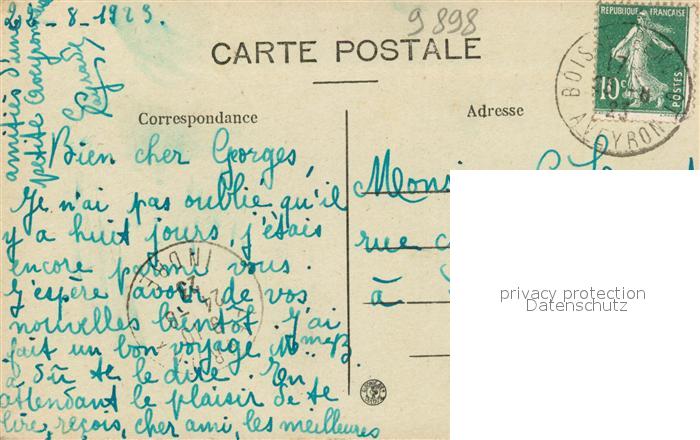 22-8-1923.
9898
CARTE POSTALE
REPUBLIQUE FRANÇAISE
10c
POSTES
BOIS
AVEYRON
Correspondance
Adresse
Bien cher Gorges,
Je n'ai pas oublié qu'il
y a huit jours, j'étais
encore parmi vous.
J'espère avoir de vos
nouvelles bientôt. J'ai
fait un bon voyage. Mme B.
a dû te le dire. En
attendant le plaisir de te
lire, reçois, cher ami, les meilleures
amitiés d'une
petite aveyronnaise
INDRE
Monsieur
rue
à
privacy protection
Datenschutz